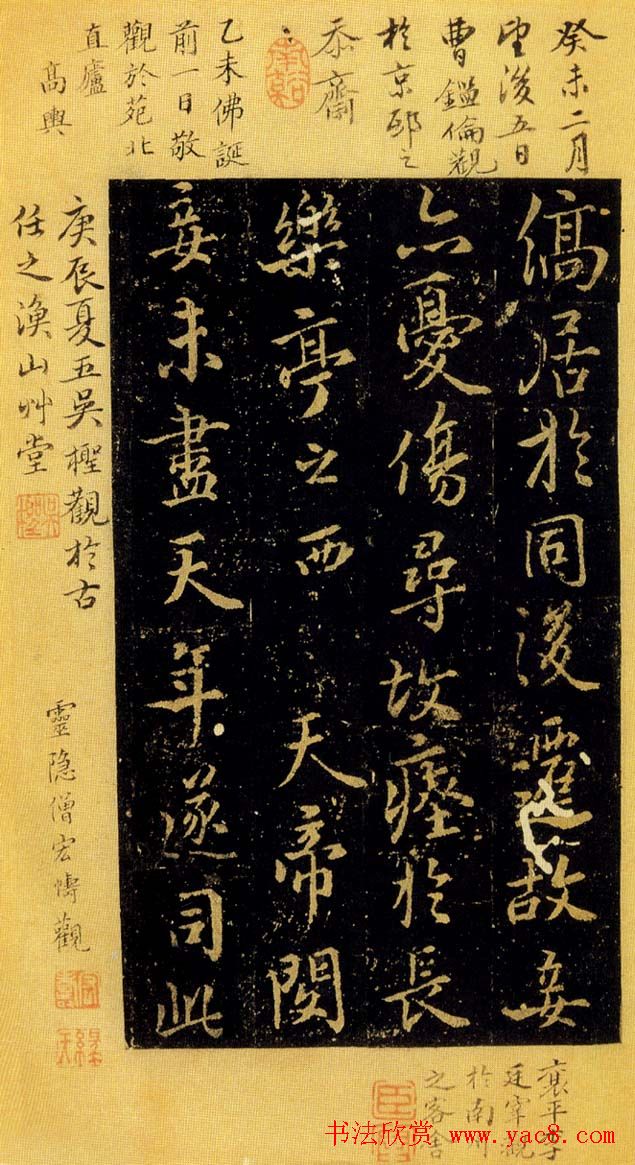 癸未二月
望後五日
曹鑑倫觀
於京邸之
忝齋
乙未佛誕
前一日敬
觀於苑北
直廬
高輿
縞居於同後遷故妾
亦憂傷尋故瘞於長
樂亭之西 天帝閔
妾未盡天年遂司此
庚辰夏五吳檉觀於古
任之漁山艸堂
靈隐僧宏觀
襄平李
廷宰觀
於南州
之客舍
书法欣赏 www.yac8.com